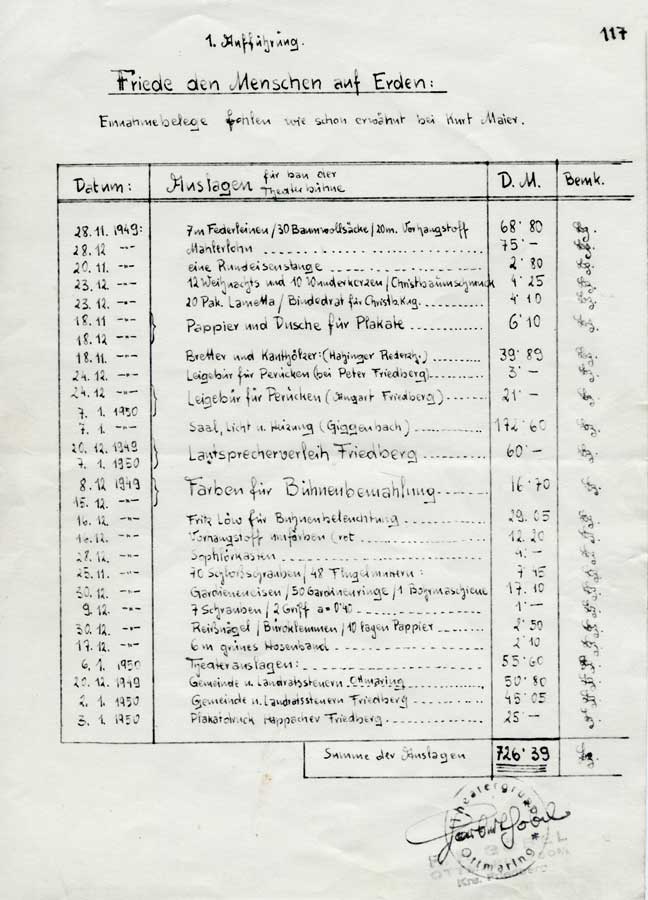 117
1. Aufführung.
Friede den Menschen auf Erden:
Einnahmebelege fehlen wie schon erwähnt bei Kurt Maier.
Datum: Auslagen für bau der Theaterbühne D. M. Bemk.
28. 11. 1949: 7 m Federleinen / 30 Baumwollsäcke / 20m. Vorhangstoff 68' 80
28. 12 -"- Mahlerlohn 75' -
20. 11. -"- eine Rundeisenstange 2' 80
23. 12 -"- 12 Weihnachts und 10 Wunderkerzen / Christbaumschmuck 4' 25
23. 12. -"- 20 Pak. Lametta / Bindedrat für Christb. Kug. 4' 10
18. 11 -"- Pappier und Dusche für Plakate 6' 10
18. 12 -"-
18. 11. -"- Bretter und Kanthölzer: 39' 89
24. 12. -"- Leigebür für Perücken (bei Peter Friedberg) 3' -
24. 12 -"- Leigebür für Perücken ( Friedberg) 21' -
7. 1. 1950
7. 1. -"- Saal, Licht u. Heizung (Giggenbach) 172' 60
20. 12. 1949 Lautsprecherverleih Friedberg 60' -
7. 1. 1950
8. 12 1949 Farben für Bühnenbemahlung 16' 70
15. 12. -"-
16. 12. -"- Fritz Löw für Buhnenbeleuchtung 29. 05
16. 12. -"- Vorhangstoff umfärben (rot 12. 20
28. 12. -"- 4. -
25. 11. -"- 70 Schloßschrauben / 48 Flügelmuttern: 7' 45
30. 12. -"- Gardieneneisen / 50 Gardineuringe / 1 Bohrmaschiene 17. 10
9. 12. -"- 7 Schrauben / 2 Griff a = 0'40 1' -
30. 12. -"- Reißnägel / Büroklemmen / 10 lagen Pappier 2' 50
17. 12. -"- 6 m grünes Hosenband 2' 10
6. 1. 1950 Theaterauslagen: 55' 60
20. 12. 1949 Gemeinde u. Landratssteuern Ottmaring 50' 80
2. 1. 1950 Gemeinde u. Landratssteuern Friedberg 45' 05
3. 1. 1950 Plakatdruck Happacher Friedberg 25' -
Summe der Auslagen 726' 39
Theatergruppe
Ottmaring